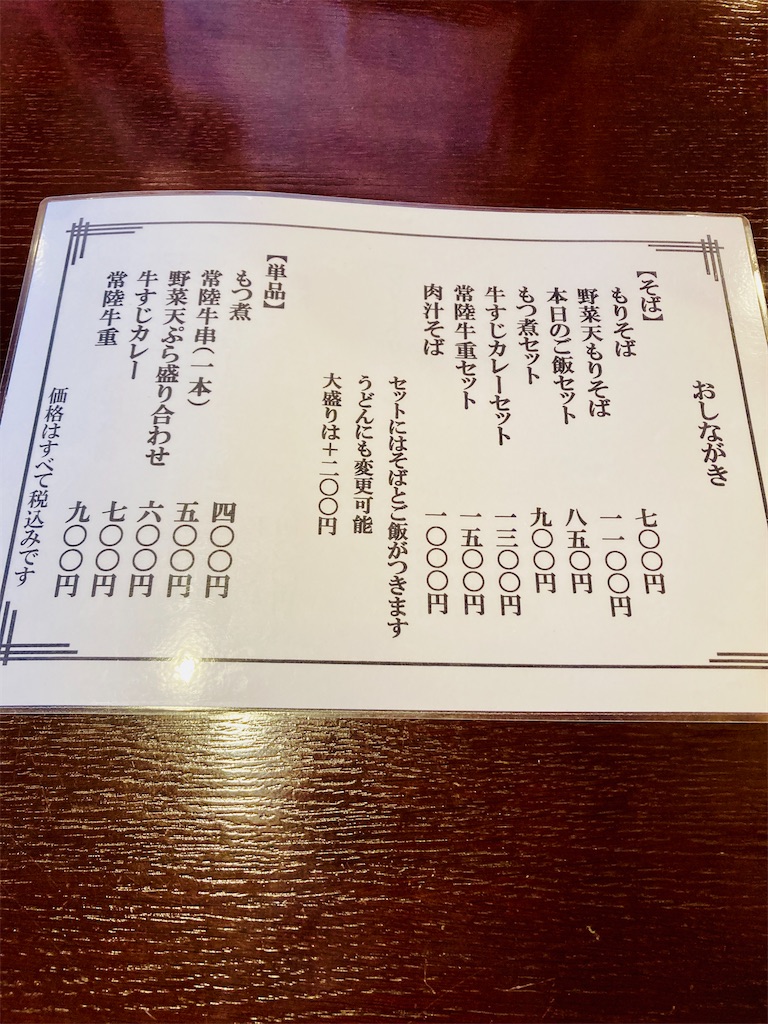 おしながき
【そば】
もりそば 七〇〇円
野菜天もりそば 一一〇〇円
本日のご飯セット 八五〇円
もつ煮セット 九〇〇円
牛すじカレーセット 一三〇〇円
常陸牛重セット 一五〇〇円
肉汁そば 一〇〇〇円
セットにはそばとご飯がつきます
うどんにも変更可能
大盛りは+二〇〇円
【単品】
もつ煮 四〇〇円
常陸牛串(一本) 五〇〇円
野菜天ぷら盛り合わせ 六〇〇円
牛すじカレー 七〇〇円
常陸牛重 九〇〇円
価格はすべて税込みです